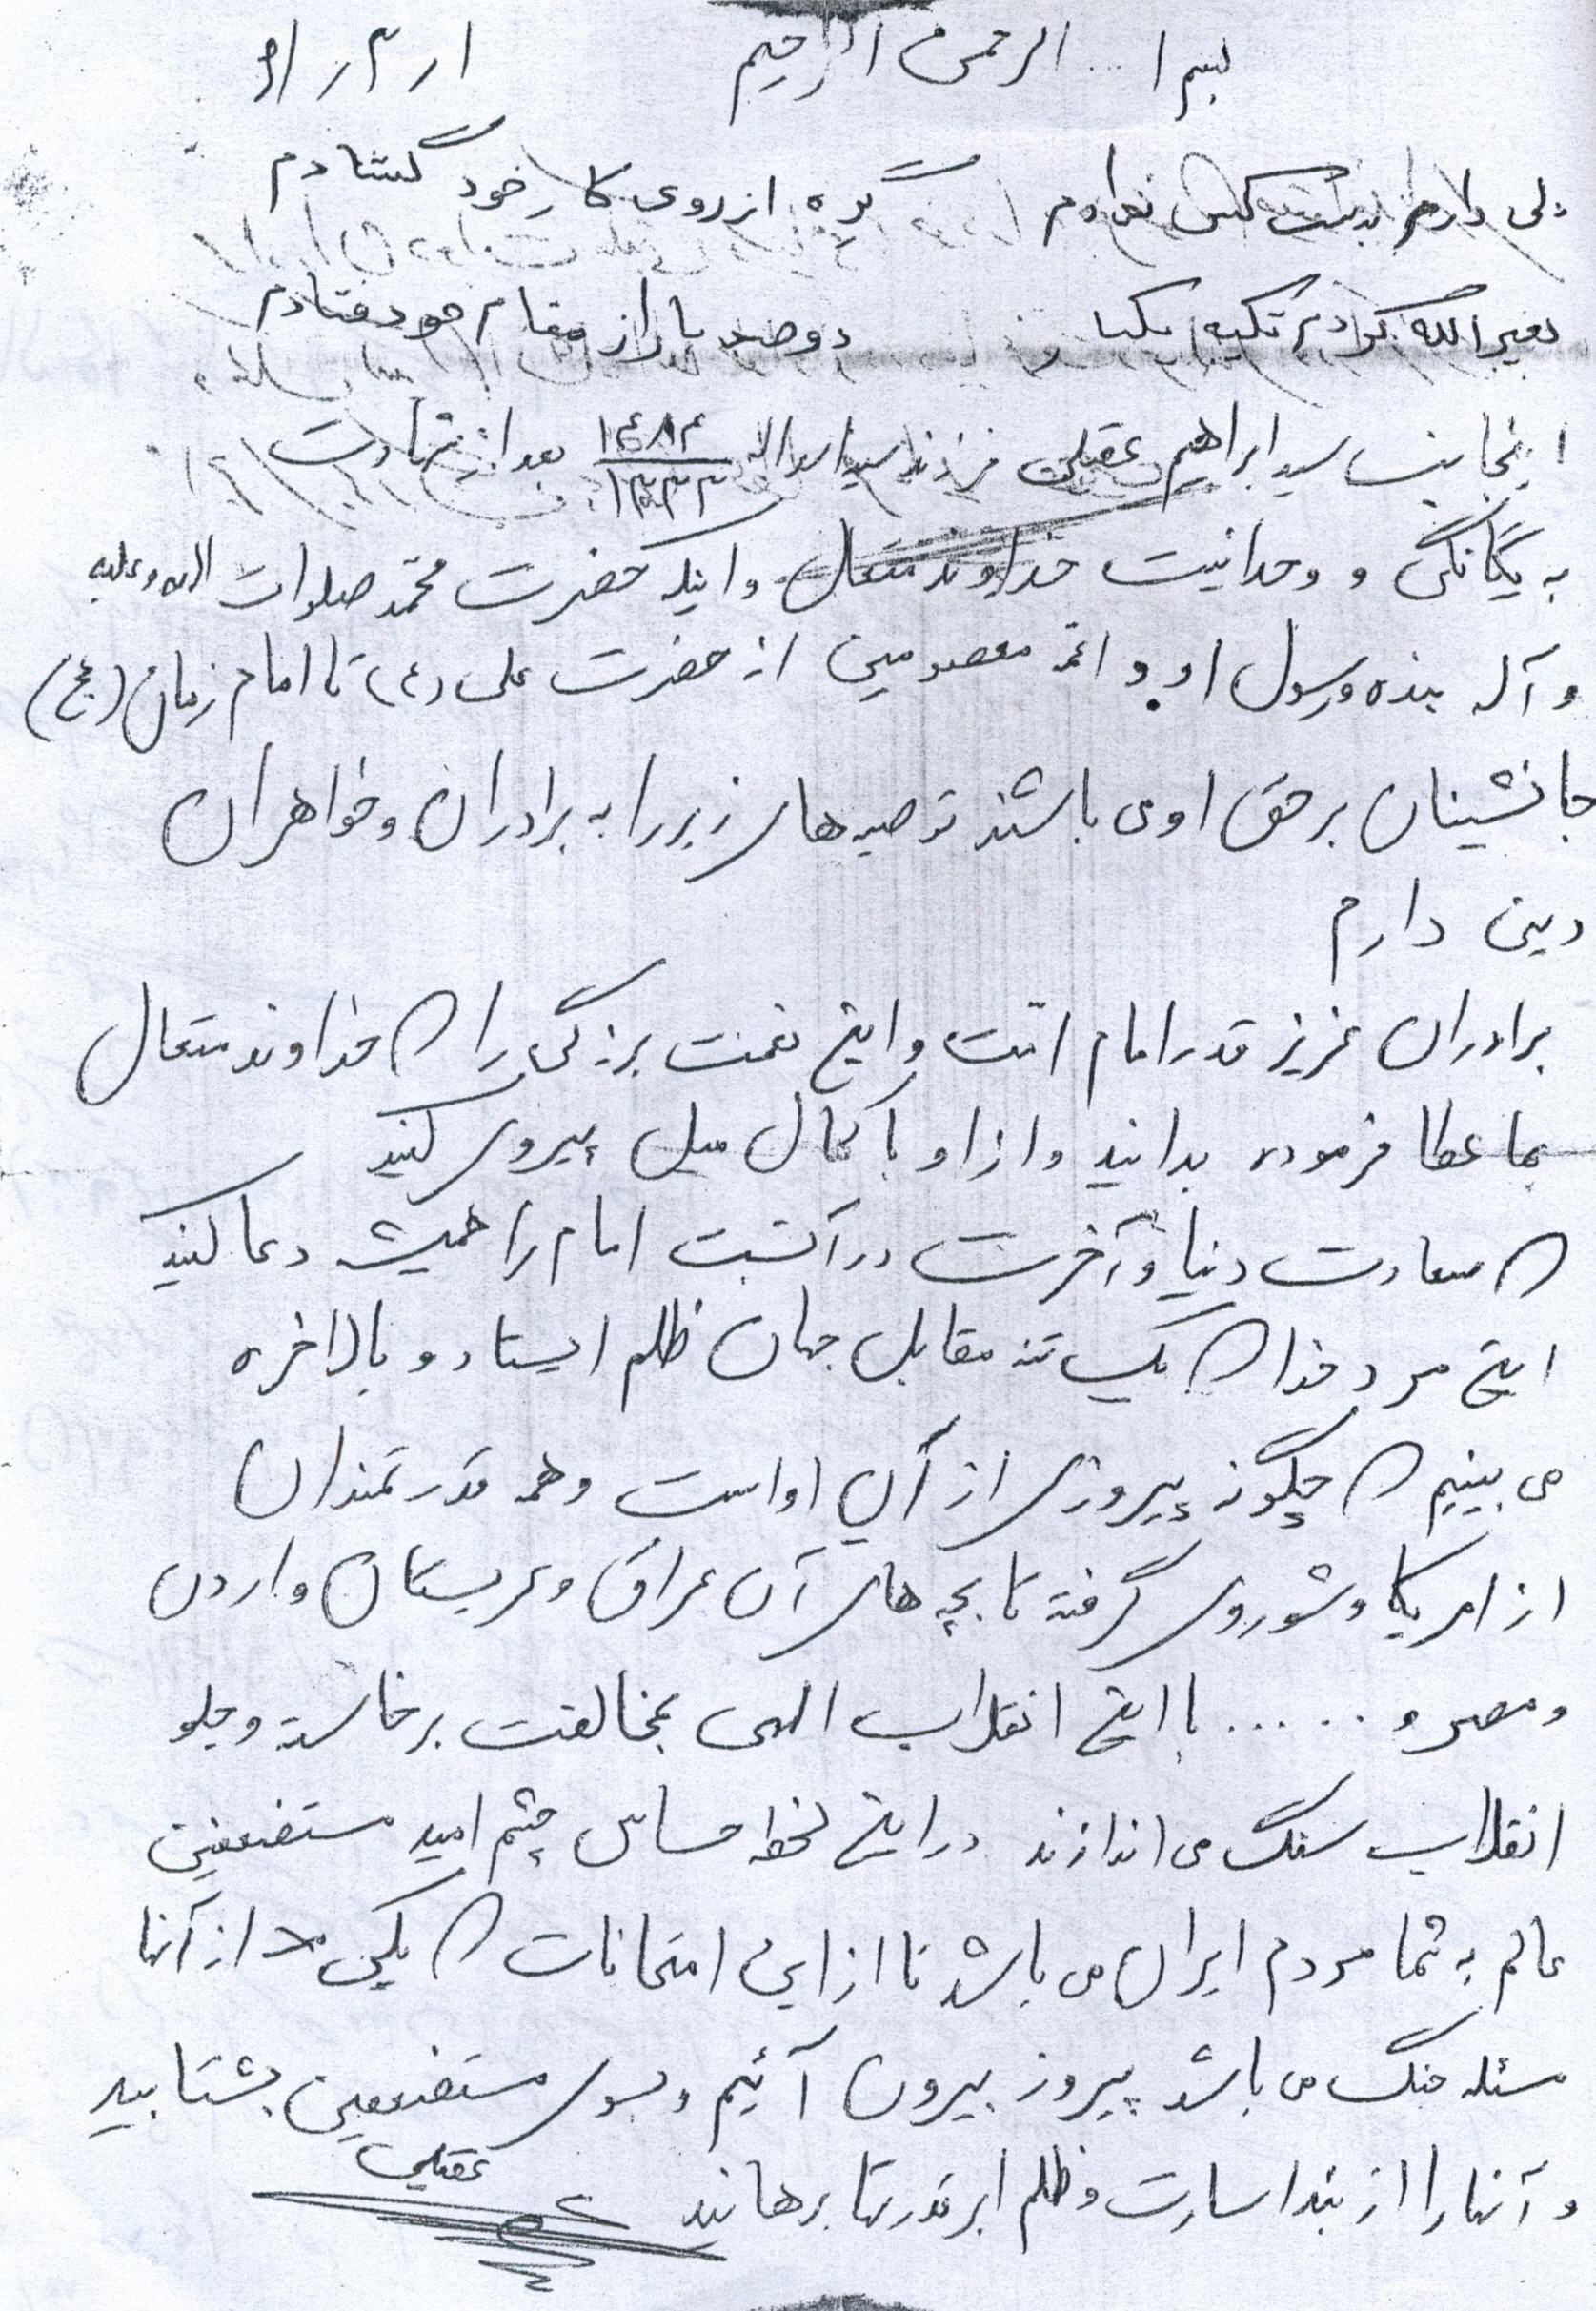 بسم ا... الرحمن الرحیم
دلی دارم بدست کس ندادم گره از روی کار خود گشادم
بغیر الله کردم تکیه یکبار دوصد بار از مقام خود فتادم
اینجانب سید ابراهیم عقیلی فرزند سید اسداله بعد از شهادت
به یگانگی و وحدانیت خداوند متعال و اینکه حضرت محمد صلوات اله علیه
و آله بنده و رسول او و ائمه معصومین از حضرت علی (ع) تا امام زمان (عج)
جانشینان بر حق او می باشند توصیه های زیر را به برادران و خواهران
دینی دارم
برادران عزیز قدر امام امت و این نعمت بزرگی را که خداوند متعال
بما عطا فرموده بدانید و از او با کمال میل پیروی کنید
که سعادت دنیا و آخرت در آنست امام را همیشه دعا کنید
این مرد خدا که یک تنه مقابل جهان ظلم ایستاد و بالاخره
می بینیم که چگونه پیروزی از آن او است و همه قدرتمندان
از امریکا و شوروی گرفته تا بچه های آن عراق و عربستان و اردن
و مصر و ..... با این انقلاب الهی بمخالفت برخاسته و جلو
انقلاب سنگ می اندازند در این لحظه حساس چشم امید مستضعفین
عالم به شما مردم ایران می باشد تا از این امتحانات که یکی از آنها
مسئله جنگ می باشد پیروز بیرون آئیم و بسوی مستضعفین بشتابید
و آنها را از بند اسارت و ظلم ابرقدرتها برهانید
عقیلی